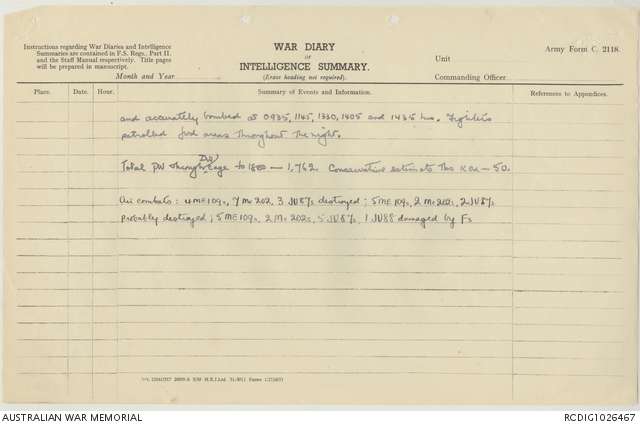 Instructions regarding War Diaries and Intelligence
Summaries are contained in F.S. Regs., Part II.
and the Staff Manual respectively. Title pages
will be prepared in manuscript.
Month and Year
WAR DIARY
or
INTELLIGENCE SUMMARY.
(Erase heading not required).
Army Form C. 2118.
Unit
Commanding Officer
Place. Date. Hour. Summary of Events and Information References to Appendices.
and accurately bombed at 0935, 1145, 1330, 1405 and 1435 hrs. Fighters
patrolled fwd areas throughout the night.
Div
Total PW through cage to 1800 — 1,762 Conservative estimate — 50.
Air combats: 4 ME 109s, 7 Mc 202, 3 JU 87s destroyed; 5 ME 109s, 2 Mc 202s, 2 JU 87s
probably destroyed; 5 ME 109s, 2 Mc 202s, 5 JU 87s, 1 JU 88 damaged by Fs
AUSTRALIAN WAR MEMORIAL
RCDIG1026467